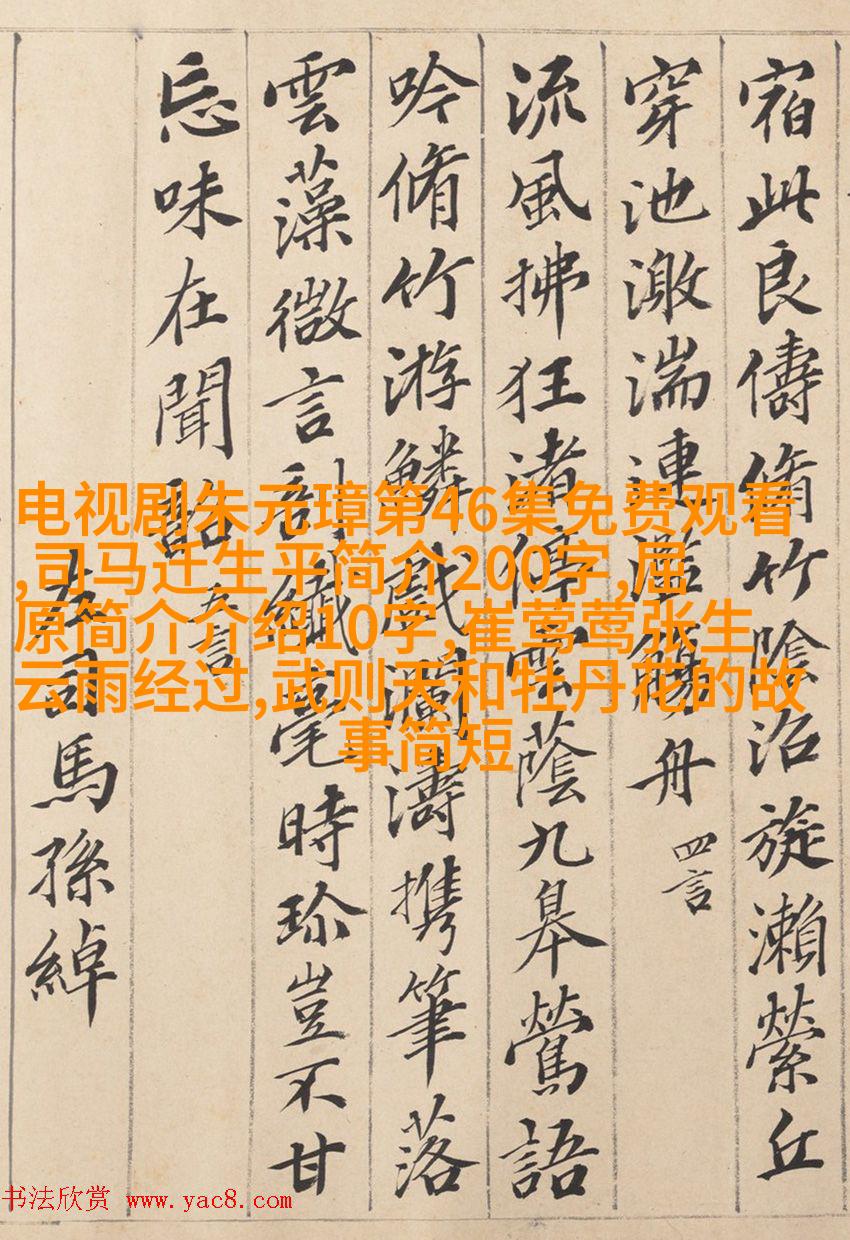 宿此良儔脩竹陰沼旋瀨縈丘
穿池激湍連濫觴舟 四言
流風拂狂渚停雲蔭九皋鶯語
吟脩竹游鱗戲瀾濤攜筆落
雲藻微言剖纖毫時珍豈不甘
忘味在聞韶 五言
右司馬孫綽
电视剧朱元璋第46集免费观看
,司马迁生平简介200字,屈
原简介介绍10字,崔莺莺张生
云雨经过,武则天和牡丹花的故
事简短
书法欣赏 www.yac8.com